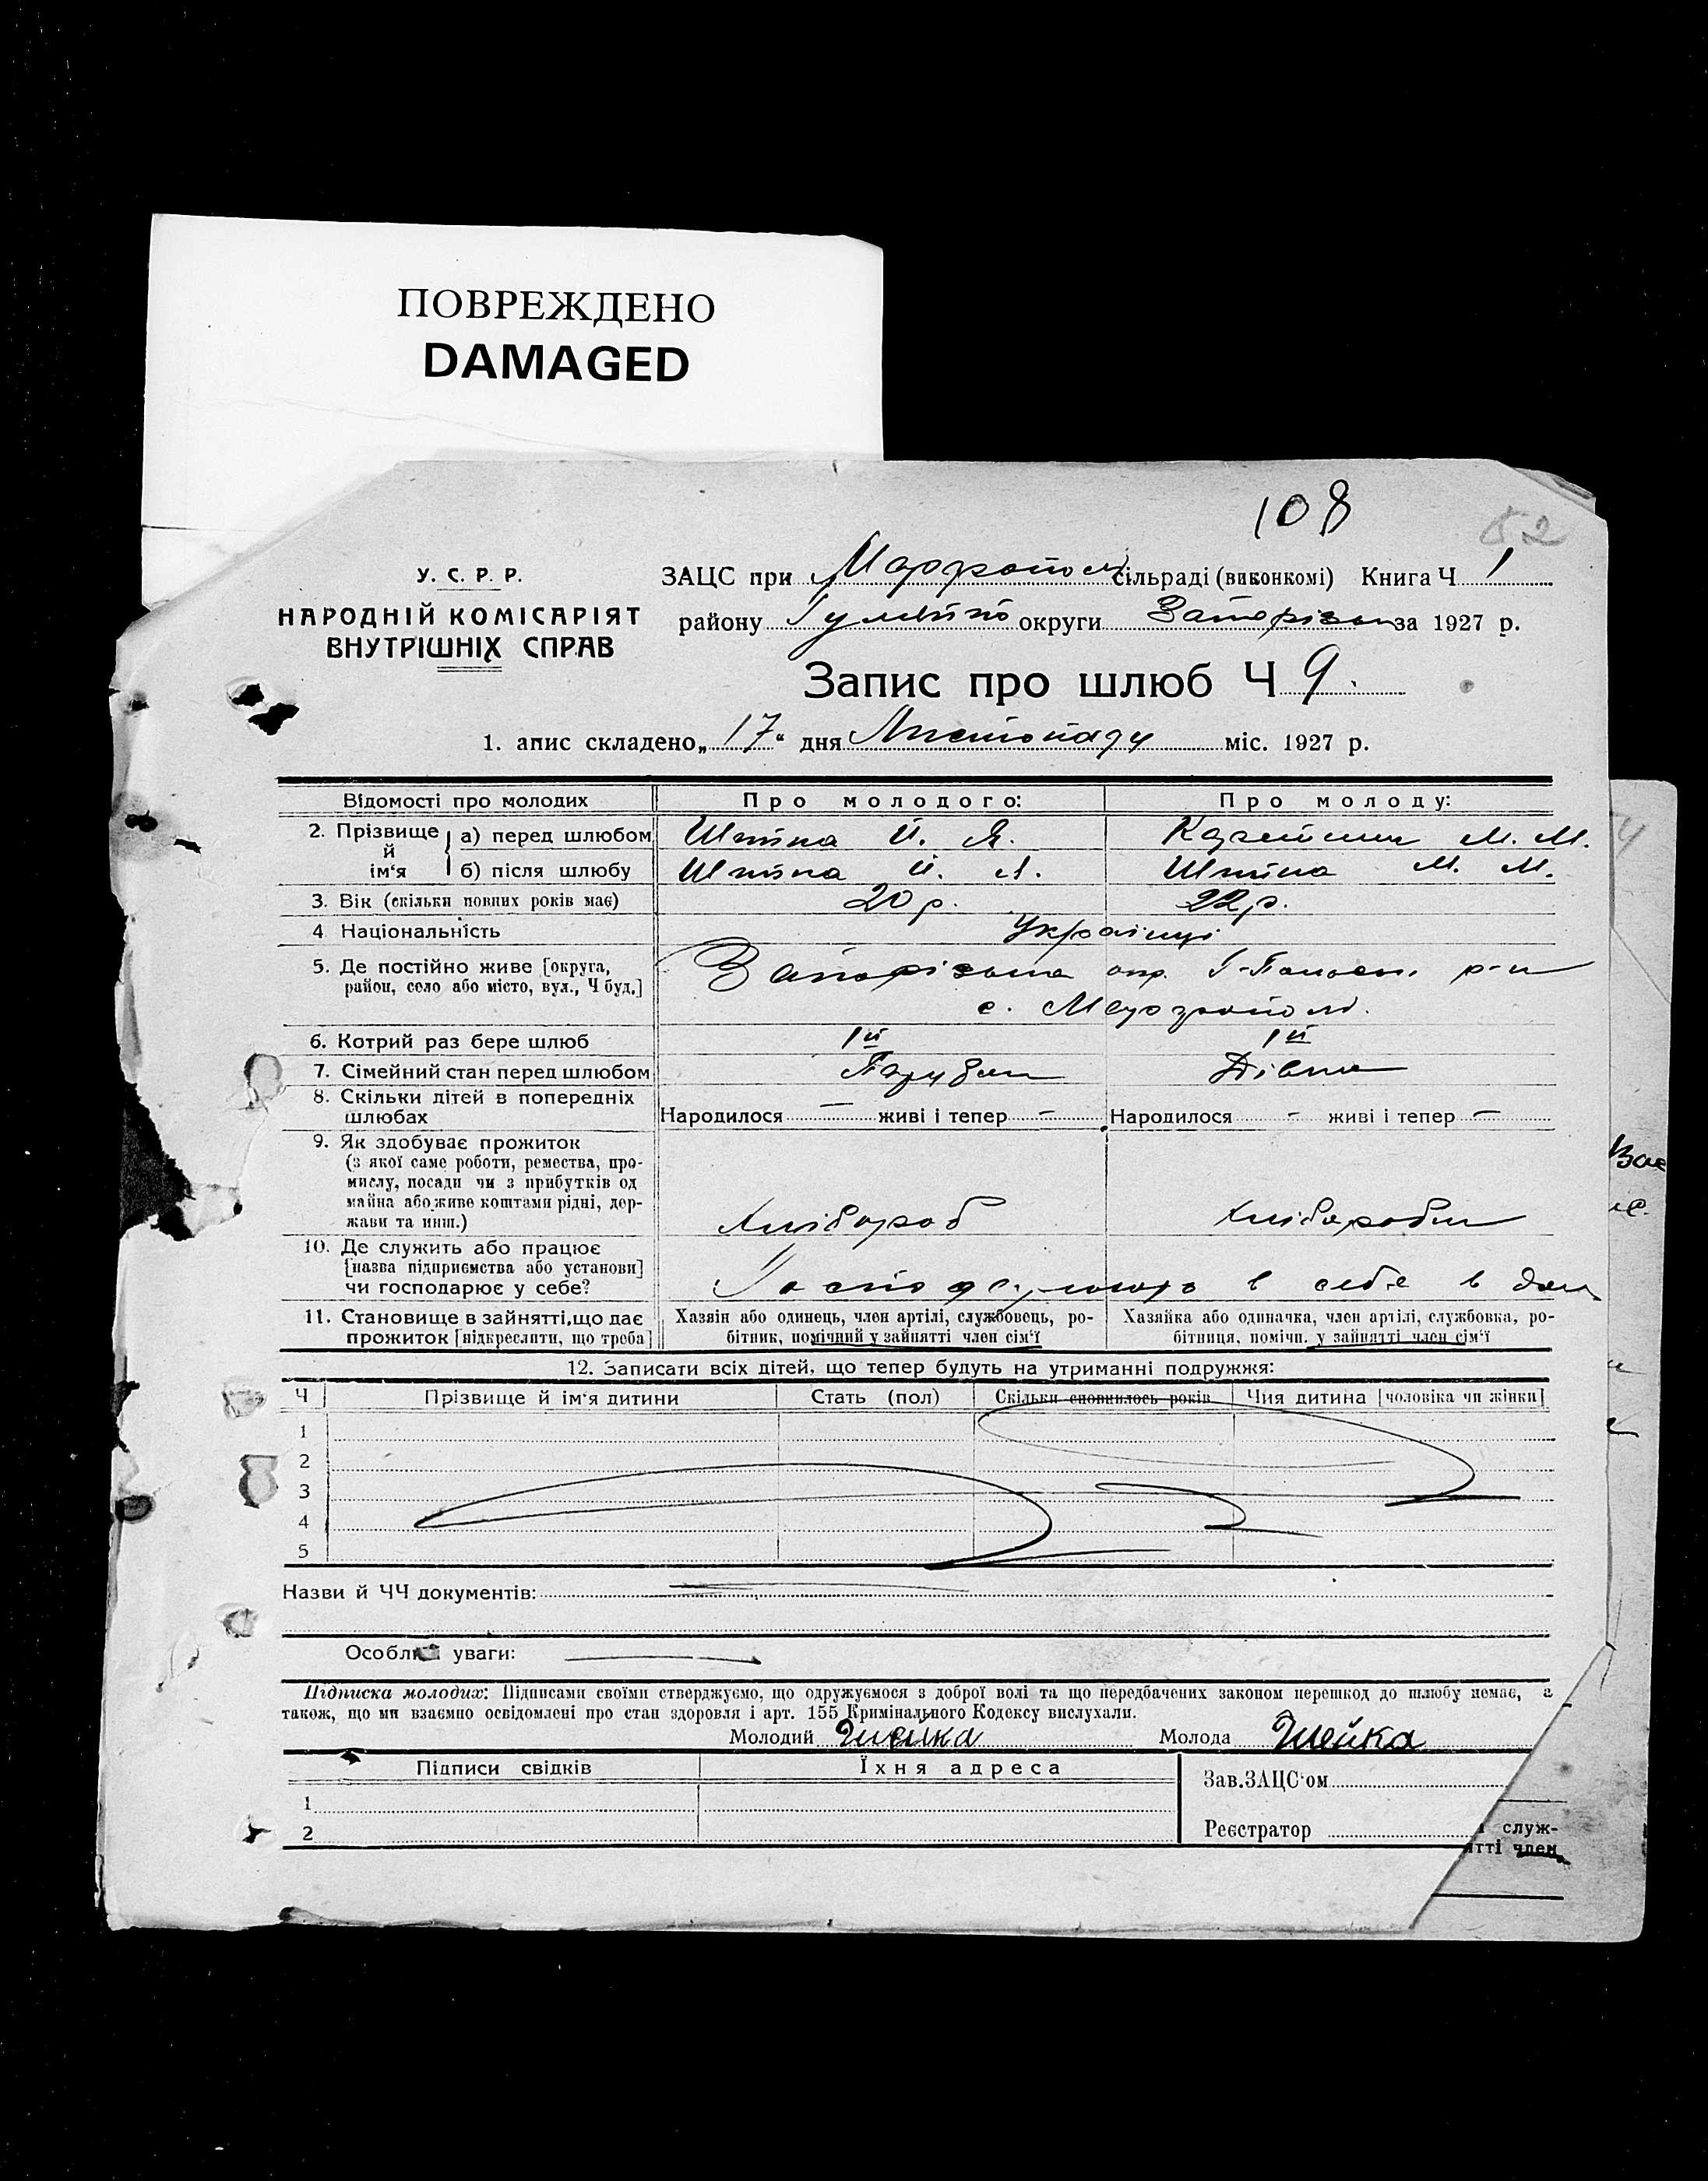 ПОВРЕЖДЕНО
DAMAGED
108
52
У. С. Р. Р.
НАРОДНІЙ КОМІСАРІЯТ
ВНУТРІШНІХ СПРАВ
ЗАЦС при сільраді (виконкомі) Книга Ч 1
району округи за 1927 р.
Запис про шлюб Ч 9.
1. апис складено „17“ дня Листопаду міс. 1927 р.
Відомості про молодих Про молодого: Про молоду:
2. Прізвище й ім‘я а) перед шлюбом Й. Я. М. М.
б) після шлюбу Й. Я. М. М.
3. Вік (скільки повних років має) 20 р. 22 р.
4 Національність Українці
5. Де постійно живе [округа, Запорізька окр. р-н
район, село або місто, вул., Ч буд.] с.
6. Котрий раз бере шлюб 1й 1й
7. Сімейний стан перед шлюбом Парубок Дівка
8. Скільки дітей в попередніх
шлюбах Народилося — живі і тепер — Народилося - живі і тепер —
9. Як здобуває прожиток
(з якої саме роботи, ремества, про-
мислу, посади чи з прибутків од
майна або живе коштами рідні, дер-
жави та инш.) Хлібороб Хліборобка
10. Де служить або працює
[назва підприємства або установи]
чи господарює у себе? в себе в
11. Становище в зайнятті, що дає Хазяін або одинець, член артілі, службовець, ро- Хазяйка або одиначка, член артілі, службовка, ро-
прожиток [підкреслити, що треба] бітник, помічний у зайнятті член сім‘ї бітниця, помічн. у зайнятті член сім‘ї
12. Записати всіх дітей, що тепер будуть на утриманні подружжя:
Ч Прізвище й ім‘я дитини Стать (пол) Скільки сповнилось років Чия дитина [чоловіка чи жінки]
1
2
3
4
5
Назви й ЧЧ документів:
уваги:
Підписка молодих: Підписами своїми стверджуємо, що одружуємося з доброї волі та що передбачених законом перешкод до шлюбу немає, а
також, що ми взаємно освідомлені про стан здоровля і арт. 155 Кримінального Кодексу вислухали.
Молодий Молода Шейка
Підписи свідків Їхня адреса Зав.ЗАЦС‘ом
1
2 Реєстратор
служ-
член